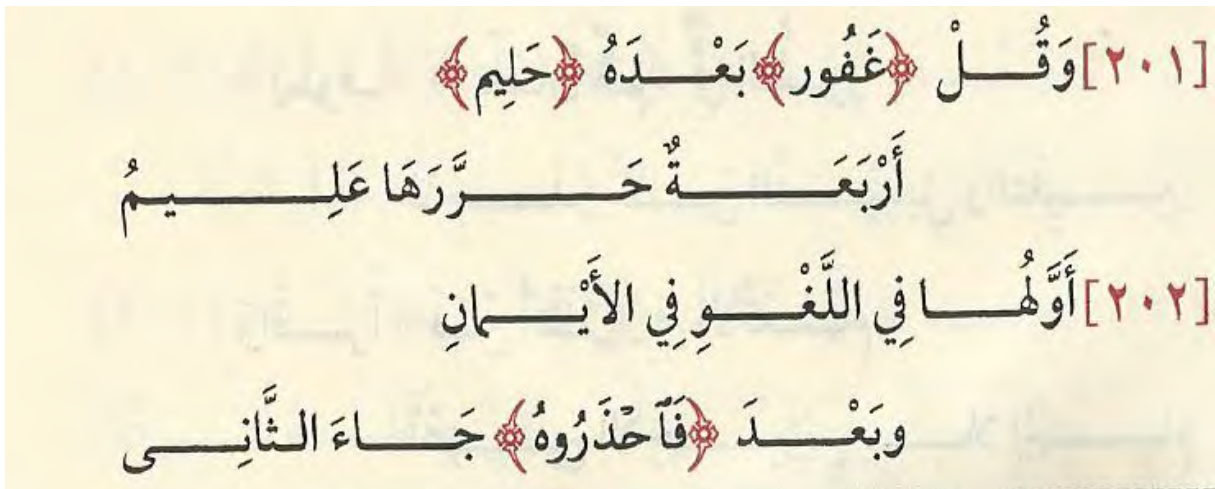 [٢٠١] وَقُلْ ﴿غَفُور﴾ بَعْدَهُ ﴿حَلِيم﴾
أَرْبَعَةٌ حَرَّرَهَا عَلِيمُ
[٢٠٢] أَوَّلُهَا فِي اللَّغْوِ فِي الأَيْمَانِ
وبَعْدَ ﴿فَٱحْذَرُوهُ﴾ جَاءَ الثَّانِى